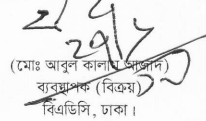 (মোঃ আবুল কালাম আজাদ)
ব্যবস্থাপক (বিক্রয়)
বিএডিসি, ঢাকা।